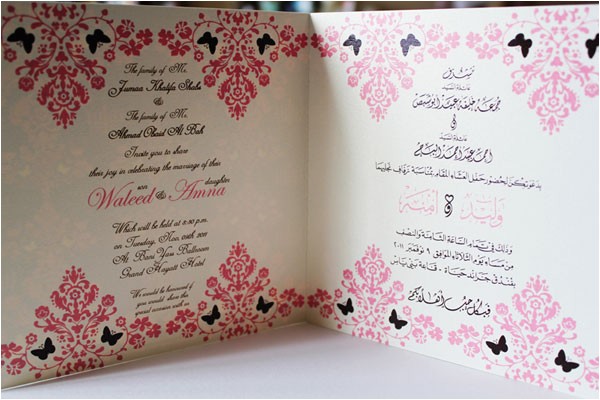 The family of Mr.
Jumaa Khalifa
&
The family of Mr.
Ahmad Obaid Al
Invite you to share
their joy in celebrating the marriage of their
son daughter
Waleed & Amna
Which will be held at 8.30 p.m.
on Tuesday, Nov. 2011
At Bani Yass Ballroom
Grand Hayatt Hotel
We would be honoured if
you would have the
special occasion with us
تتشرف
عائلة السيد
جمعة خليفة عبيد
و
عائلة السيد
أحمد عبيد أحمد
بدعوتكن لحضور حفل العشاء المقام بمناسبة زفاف نجلينا
وليد و آمنة
وذلك في تمام الساعة الثامنة والنصف
من مساء يوم الثلاثاء الموافق ٩ نوفمبر ٢٠١١
بفندق جراند حياة - قاعة بني ياس
فبكل حب أهلا بكن